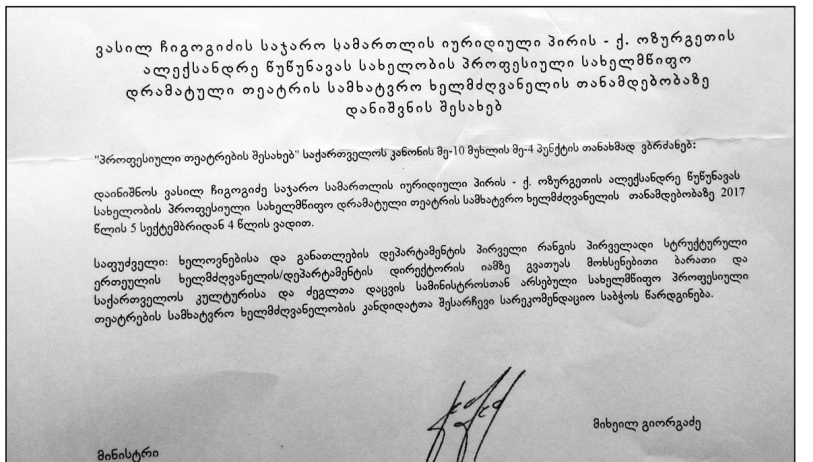 ვასილ ჩიგოგიძის საჯარო სამართლის იურიდიული პირის - ქ. ოზურგეთის
ალექსანდრე წუწუნავას სახელობის პროფესიული სახელმწიფო
დრამატული თეატრის სამხატვრო ხელმძღვანელის თანამდებობაზე
დანიშვნის შესახებ
"პროფესიული თეატრების შესახებ" საქართველოს კანონის მე-10 მუხლის მე-4 პუნქტის თანახმად ვბრძანებ:
დაინიშნოს ვასილ ჩიგოგიძე საჯარო სამართლის იურიდიული პირის - ქ. ოზურგეთის ალექსანდრე წუწუნავას
სახელობის პროფესიული სახელმწიფო დრამატული თეატრის სამხატვრო ხელმძღვანელის თანამდებობაზე 2017
წლის 5 სექტემბრიდან 4 წლის ვადით.
საფუძველი: ხელოვნებისა და განათლების დეპარტამენტის პირველი რანგის პირველადი სტრუქტურული
ერთეულის ხელმძღვანელის/დეპარტამენტის დირექტორის იამზე გვათუას მოხსენებითი ბარათი და
საქართველოს კულტურისა და ძეგლთა დაცვის სამინისტროსთან არსებული სახელმწიფო პროფესიული
თეატრების სამხატვრო ხელმძღვანელობის კანდიდატთა შესარჩევი სარეკომენდაციო საბჭოს წარდგინება.
მიხეილ გიორგაძე
მინისტრი